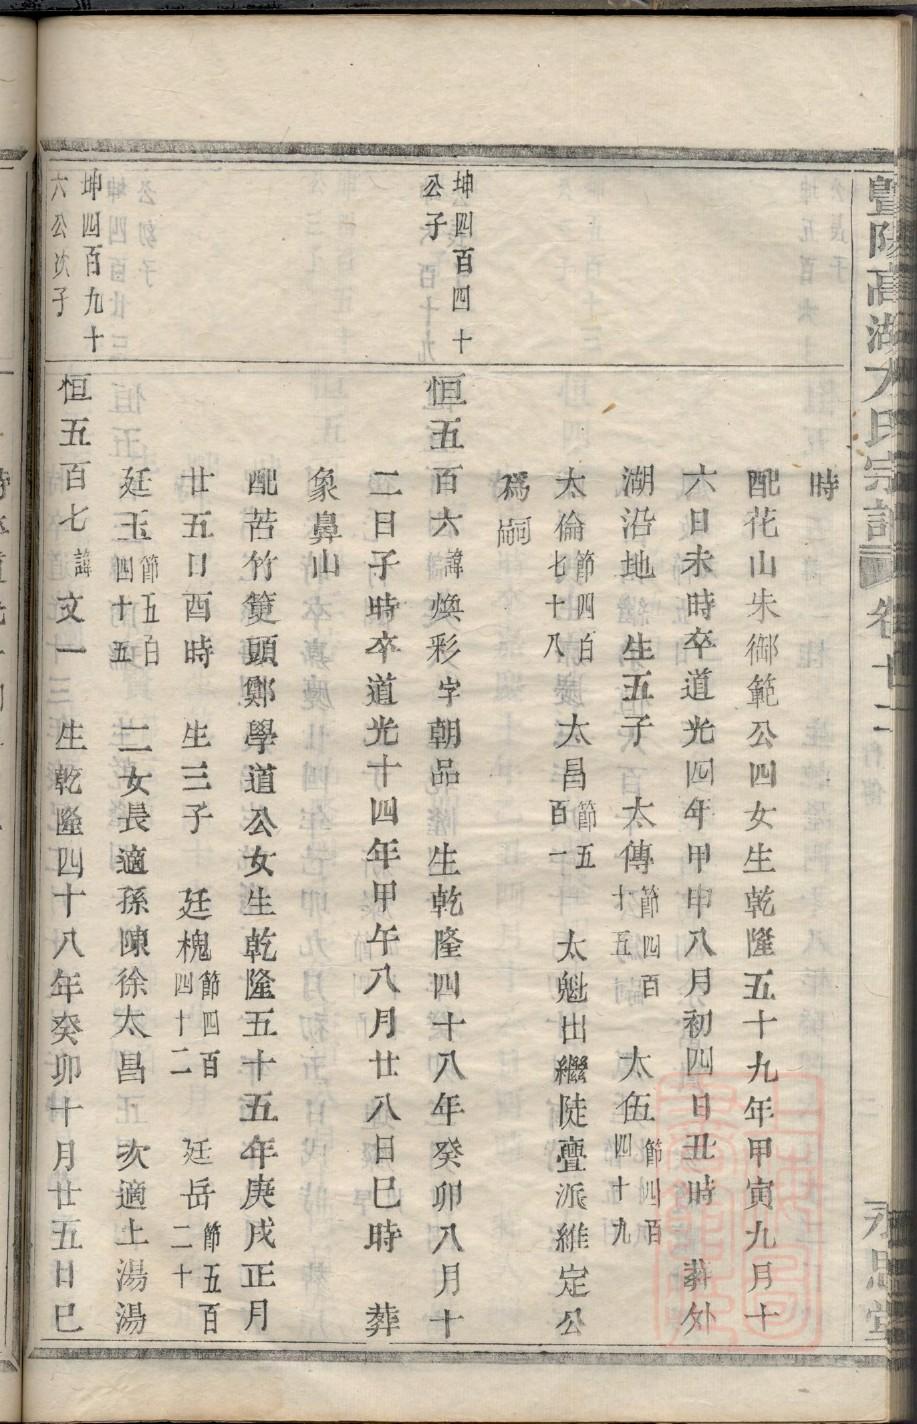 暨陽高湖方氏宗譜 卷廿二 行傳 永思堂
時
配花山朱御範公四女生乾隆五十九年甲寅九月十
六日未時卒道光四年甲申八月初四日丑時 葬外
湖沿地 生五子 太傳節四百十五 太伍節四百四十九
太倫節四百七十八 太昌節五百一 太魁出繼陡亹派維定公
爲嗣
坤四百四十公子
恒五百六諱煥彩字朝品 生乾隆四十八年癸卯八月十
二日子時卒道光十四年甲午八月廿八日巳時 葬
象鼻山
配苦竹篁頭鄭學道公女生乾隆五十五年庚戌正月
廿五日酉時 生三子 廷槐節四百四十二 廷岳節五百二十
廷玉節五百四十五 二女長適孫陳徐太昌 次適上湯湯
坤四百九十六公次子
恒五百七諱文一 生乾隆四十八年癸卯十月廿五日巳